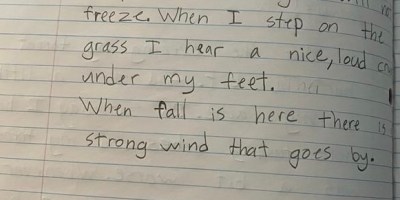 freeze. When I step on the
grass I hear a nice, loud
under my feet.
When fall is here there is
strong wind that goes by.